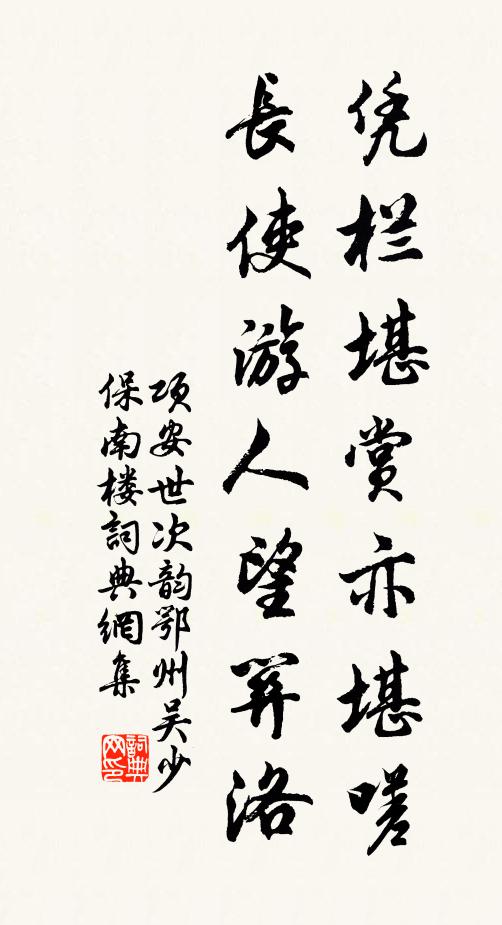 凭栏堪赏亦堪嗟
長使游人望羿洛
项安世次韵鄂州吴少
保南楼詞典網集
詞典
网印